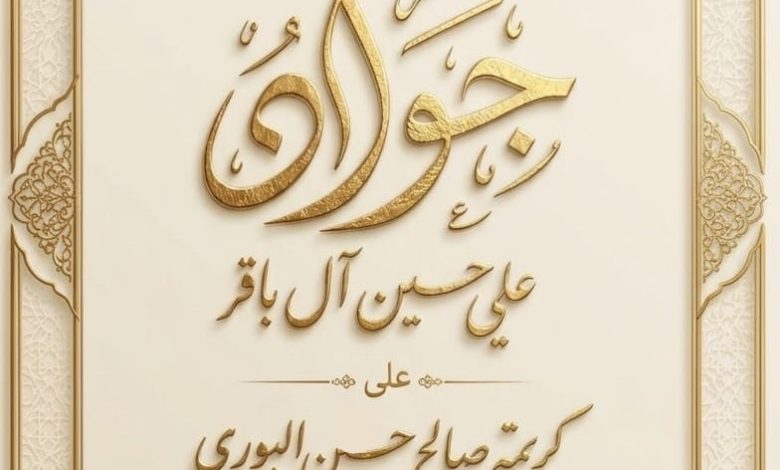 جَوَادُ
علي حسين آل باقر
على
كريمة صالح حسن البوري